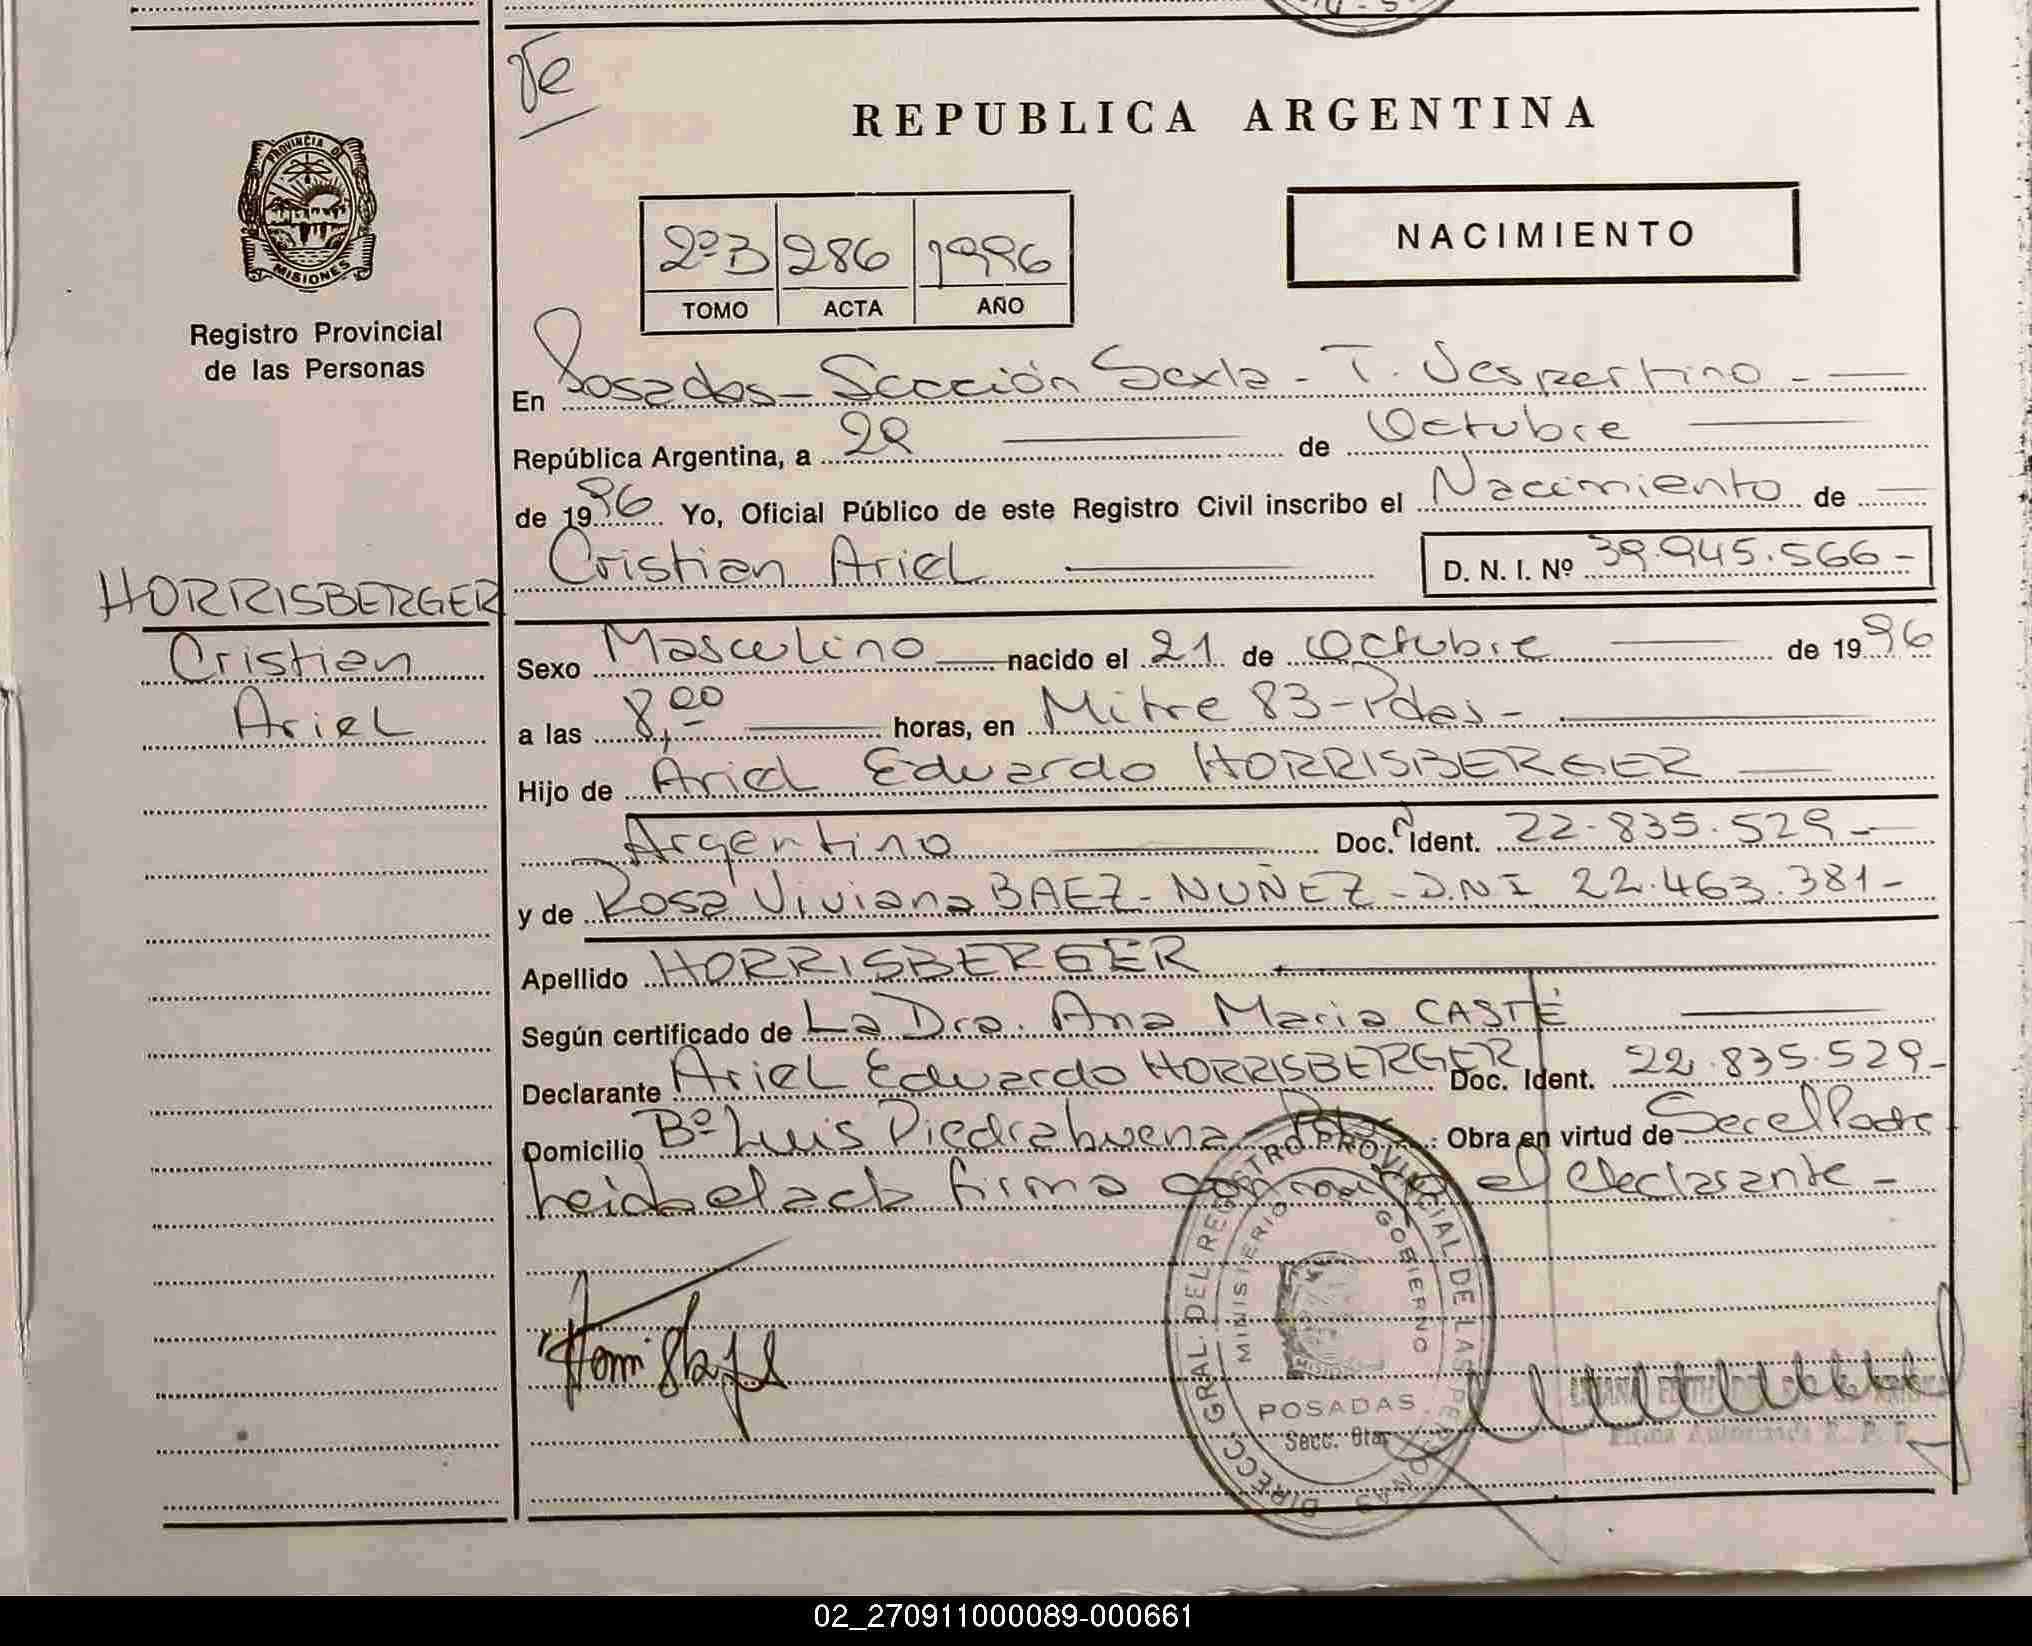 Te
REPUBLICA ARGENTINA
PROVINCIA DE
MISIONES
2º B 286 1996
TOMO ACTA AÑO
NACIMIENTO
Registro Provincial
de las Personas
En Posadas - Sección Sexta - T. Vespertino -
República Argentina, a 22 de Octubre
de 1996 Yo, Oficial Público de este Registro Civil inscribo el Nacimiento de
Cristian Ariel D. N. I. Nº 39.945.566-
HORRISBERGER
Cristian
Ariel
Sexo Masculino nacido el 21 de Octubre de 1996
a las 8,00 horas, en Mitre 83 - Pdas -
Hijo de Ariel Eduardo HORRISBERGER
Argentino Doc. Ident. 22.835.529-
y de Rosa Viviana BAEZ - NUÑEZ - D.N.I 22.463.381-
Apellido HORRISBERGER
Según certificado de La Dra. Ana Maria CASTÉ
Declarante Ariel Eduardo HORRISBERGER Doc. Ident. 22.835.529-
Domicilio Bº Luis Piedrabuena - Pdas. Obra en virtud de Ser el Padre
Leida el acta firma conmigo el declarante -
DIRECC. GRAL. DEL REGISTRO PROVINCIAL DE LAS PERSONAS
MINISTERIO GOBIERNO
POSADAS
Secc. 6ta.
Firma Autorizada R. P. P.
02_270911000089-000661